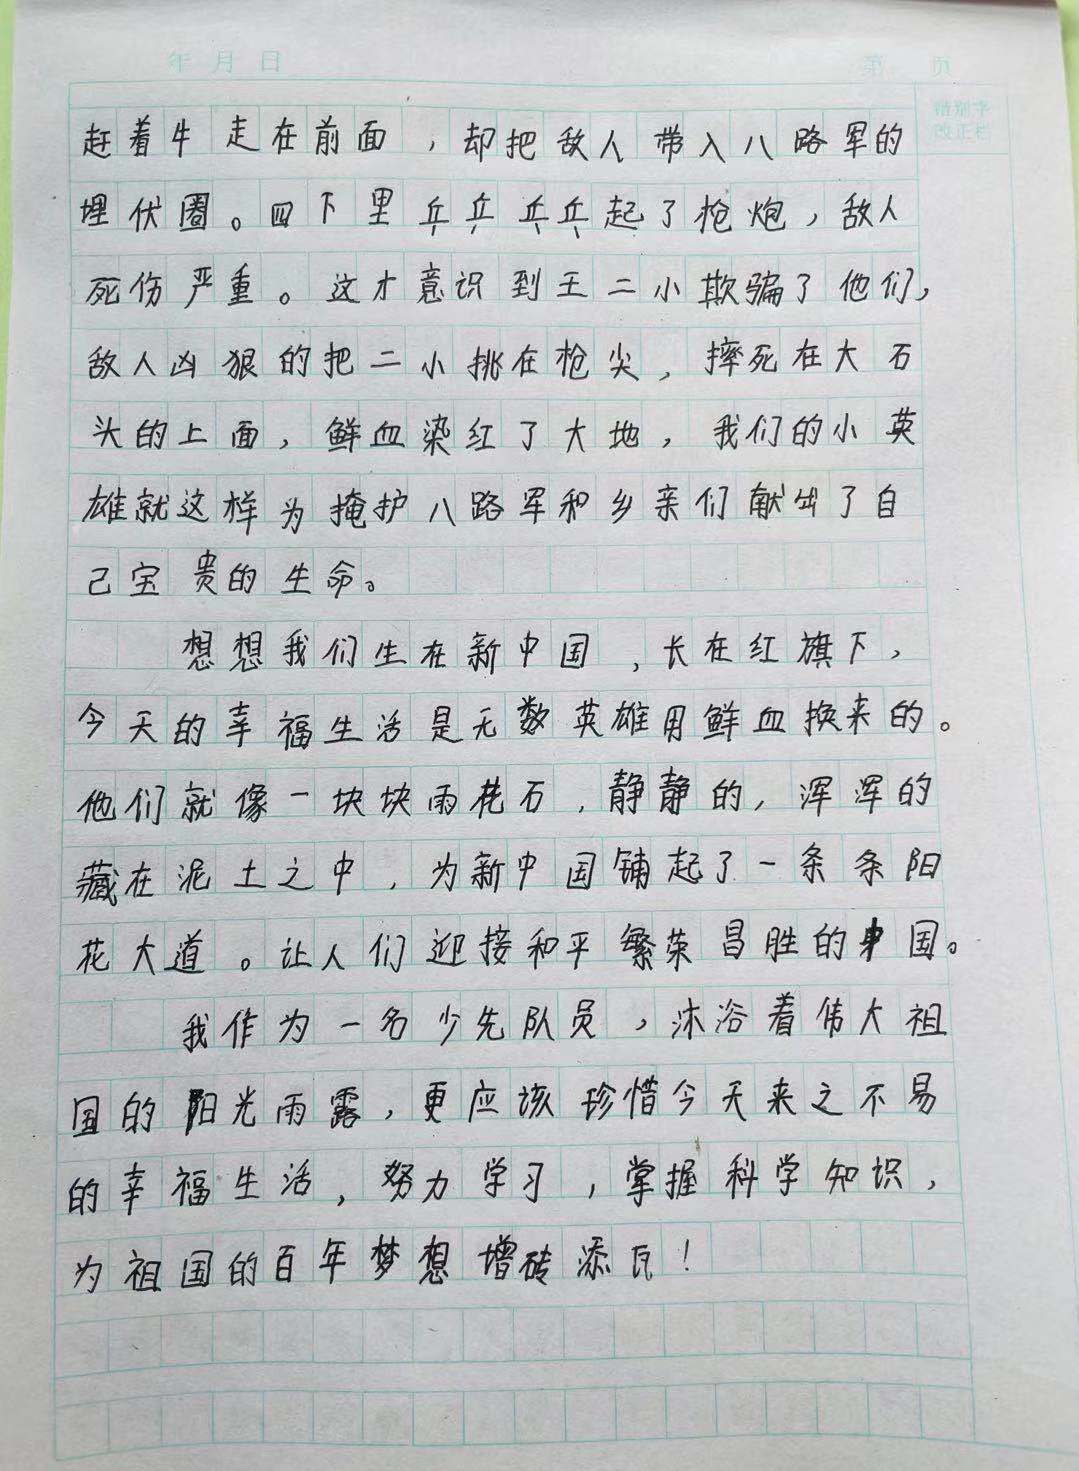 年 月 日
第 页
错别字
改正栏
赶着牛走在前面，却把敌人带入八路军的
埋伏圈。四下里乒乒乓乓起了枪炮，敌人
死伤严重。这才意识到王二小欺骗了他们，
敌人凶狠的把二小挑在枪尖，摔死在大石
头的上面，鲜血染红了大地，我们的小英
雄就这样为掩护八路军和乡亲们献出了自
己宝贵的生命。
想想我们生在新中国，长在红旗下，
今天的幸福生活是无数英雄用鲜血换来的。
他们就像一块块雨花石，静静的，浑浑的
藏在泥土之中，为新中国铺起了一条条阳
花大道。让人们迎接和平繁荣昌胜的中国。
我作为一名少先队员，沐浴着伟大祖
国的阳光雨露，更应该珍惜今天来之不易
的幸福生活，努力学习，掌握科学知识，
为祖国的百年梦想增砖添瓦！